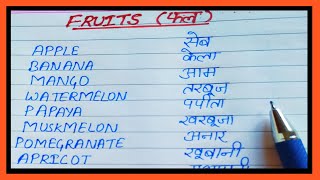 FRUITS (फल)
APPLE सेब
BANANA केला
MANGO आम
WATERMELON तरबूज
PAPAYA पपीता
MUSKMELON खरबूजा
POMEGRANATE अनार
APRICOT खूबानी